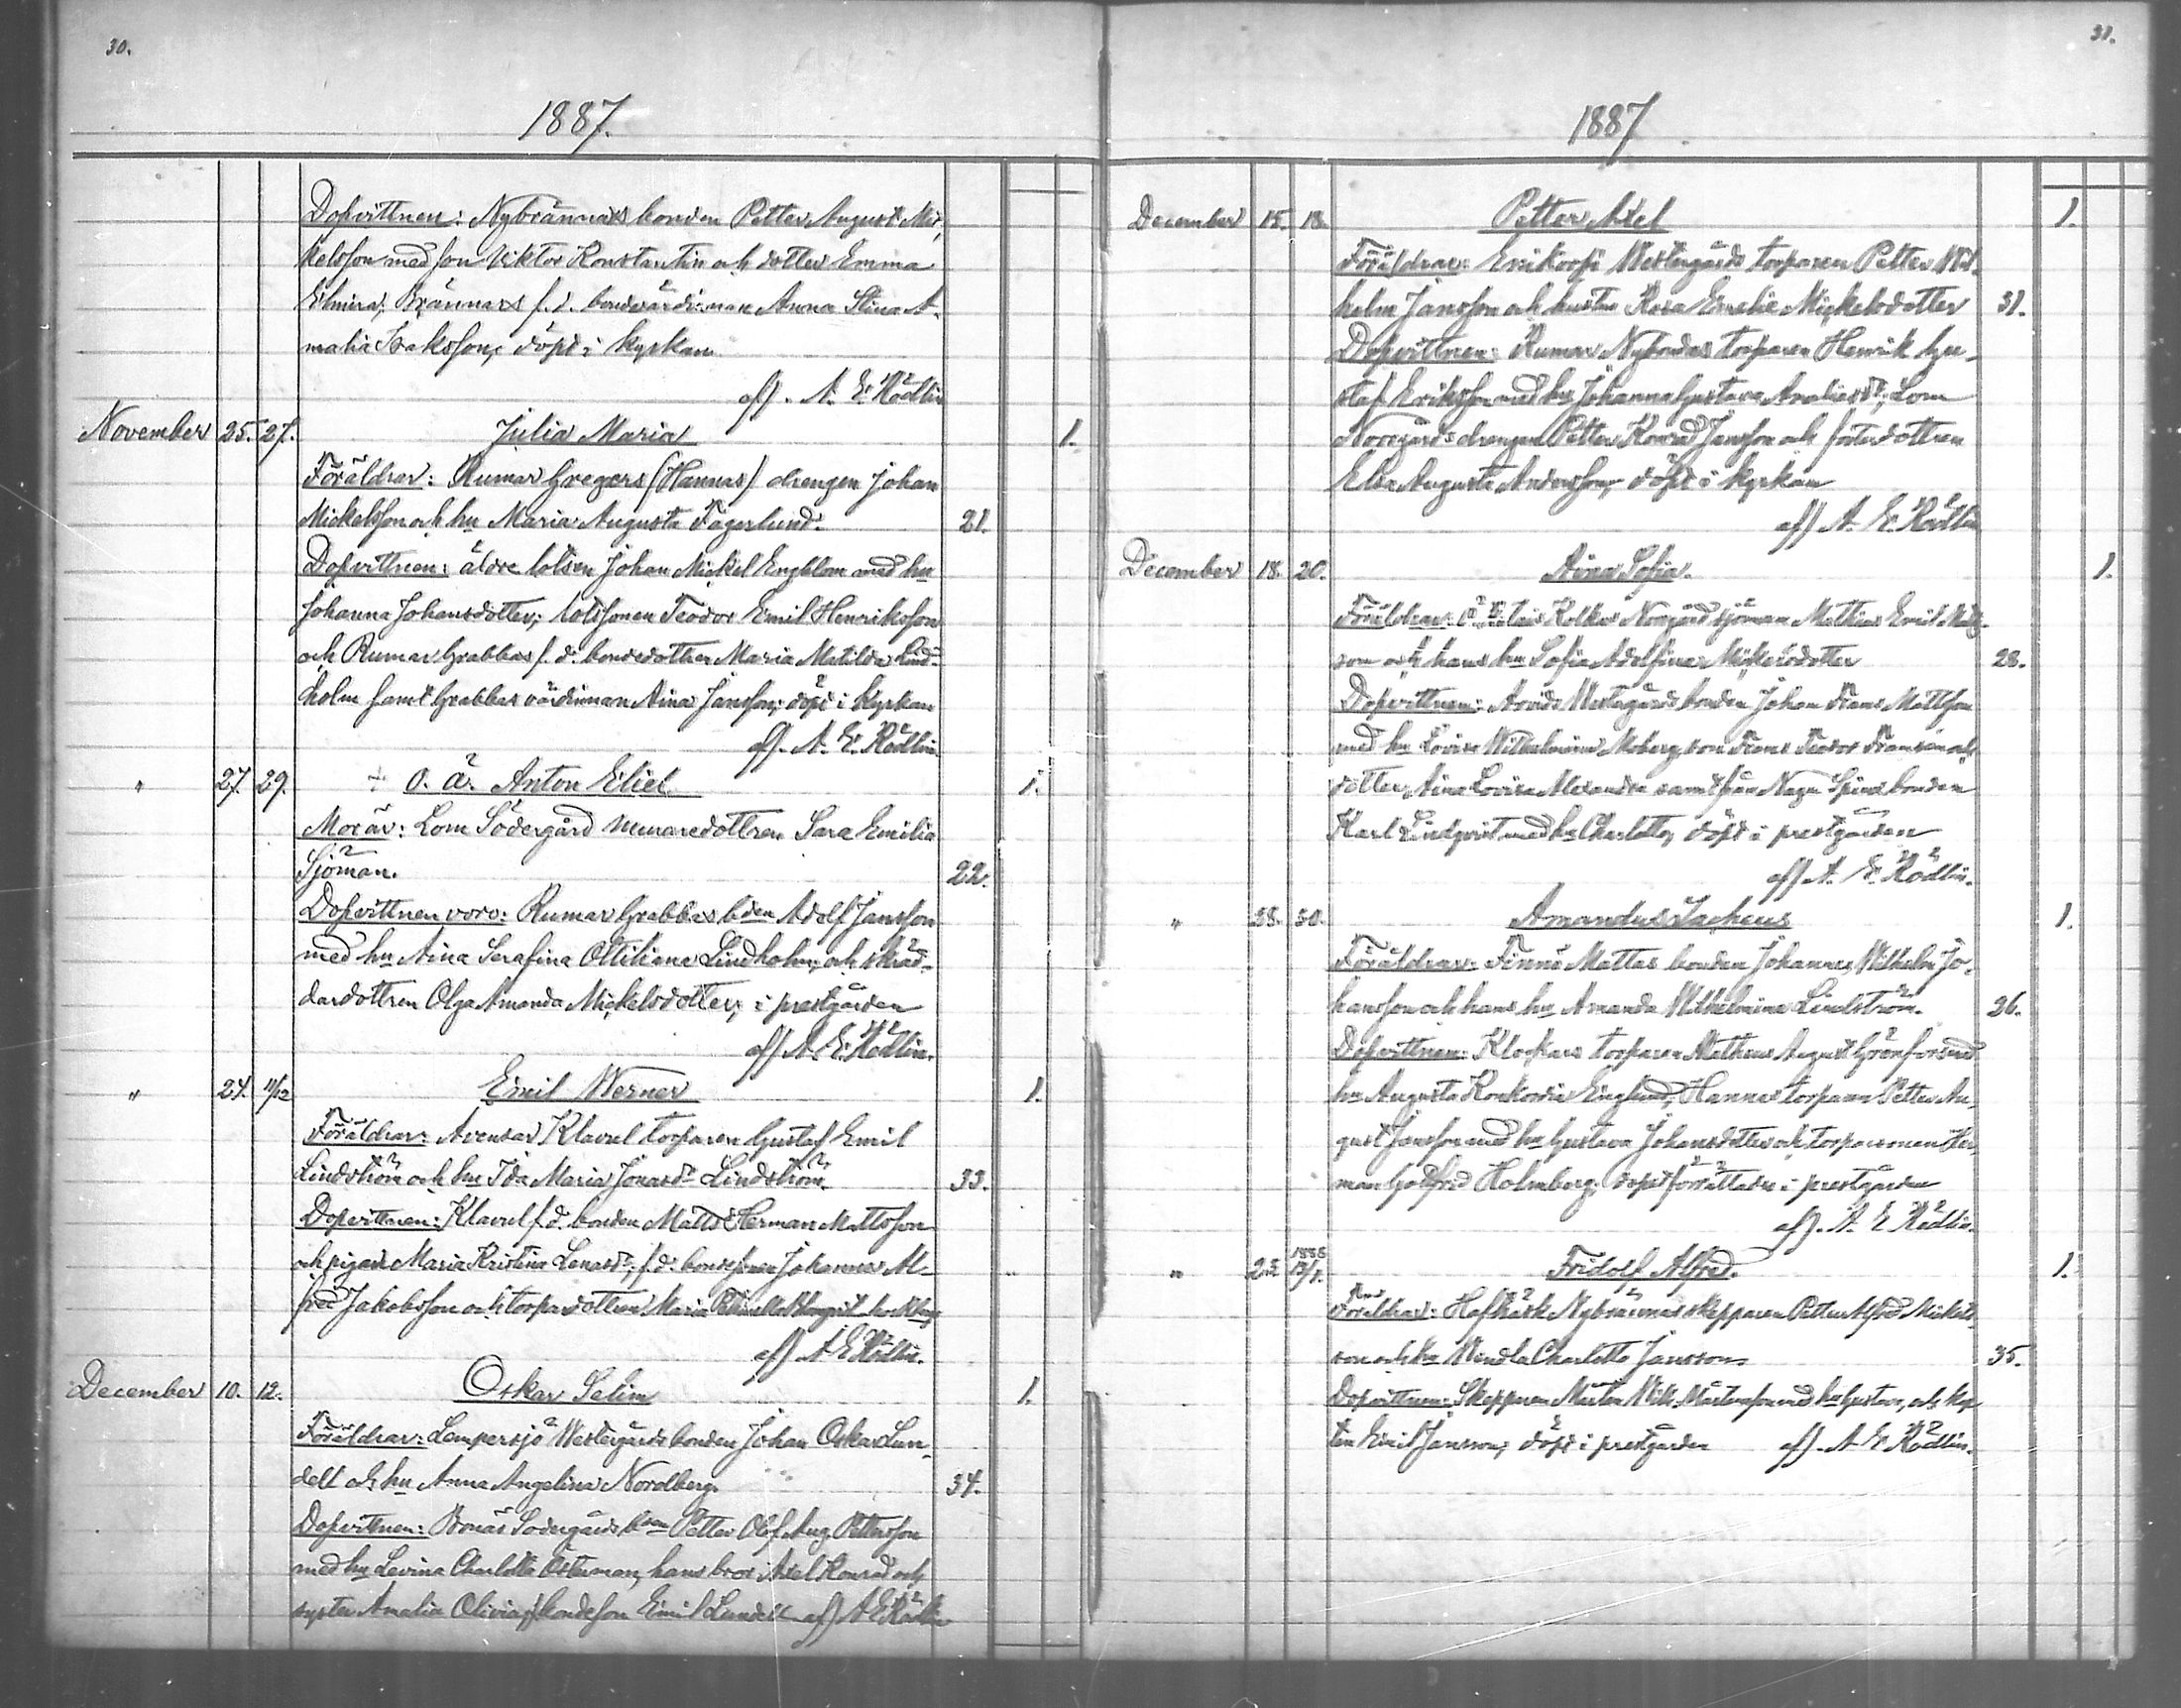 30.
1887.
Dopvittnen: Nybrännars bonden Petter August Mic-
kelsson med son Viktor Konstantin och dotter Emma
Elmira, Brännars f. d. bondevärdinnan Anna Stina A-
malia Isaksson, döpt i kyrkan
af A. E. Rådlin
November 25. 27. Julia Maria 1.
Föräldrar: Rumar Gregers (Hannas) drengen Johan
Mickelsson och hu Maria Augusta Fagerlund. 21.
Dopvittnen: äldre lotsen Johan Mickel Engblom med hu
Johanna Johansdotter; lotssonen Teodor Emil Henriksson
och Rumar Grabbas f. d. bondedottren Maria Matilda Lind-
holm samt Grabbas värdinnan Aina Jansson, döpt i kyrkan
af. A. E. Rådlin.
" 27. 29. + o. ä. Anton Eliel 1.
Moder: Lom Södergård muraredottren Sara Emilia
Sjöman. 22.
Dopvittnen voro: Rumar Grabbas bden Adolf Jansson
med hu Aina Serafina Ottiliana Lindholm, och skräd-
dardottren Olga Amanda Mickelsdotter, i prestgården
af A. E. Rådlin.
" 24. 11/12 Emil Werner 1.
Föräldrar: Avensar Klavul torparen Gustaf Emil
Lindström och hu Ida Maria Jonasdr Lindström. 33.
Dopvittnen: Klavul f. d. bonden Matts Herman Mattsson
och pigan Maria Kristina Lenasdr, f. d. bondesonen Johannes Al-
fred Jakobsson och torparedottren Maria
af A E Rådlin.
December 10. 12. Oskar Selim 1.
Föräldrar: Lempersjö Westergårds bonden Johan Oskar Lun-
dell och hu Anna Angelina Nordberg. 34.
Dopvittnen: Bonäs Södergårds bden Petter Olof Aug. Pettersson
med hu Levina Charlotta Österman, hans bror Axel Konrad och
syster Amalia Olivia, bondeson Emil Lundell af A E Rådlin
31.
1887
December 15. 18. Petter Axel 1.
Föräldrar: Erikorpi Westergårds torparen Petter Wil-
helm Jansson och hustru Rosa Emelie Mickelsdotter 31.
Dopvittnen: Rumar Nybondas torparen Henrik Gu-
staf Eriksson med hu Johanna Gustava Andersdr, Lom
Norrgårds drengen Petter Konrad Jansson och fosterdottren
Elsa Augusta Andersson, döpt i kyrkan
af A. E. Rådlin
December 18. 20. Aina Sofia. 1.
Föräldrar: Kolkus Norrgård sjöman Mathias Emil Matts-
son och hans hu Sofia Adolfina Mickelsdotter 28.
Dopvittnen: Arvids Westergårds bonden Johan Frans Mattsson
med hu Lovisa Wilhelmina Moberg, son Frans Teodor Fransson och
dotter Aina Lovisa Alexandra samt från Nagu Spinas bonden
Karl Lindqvist med hu Charlotta, döpt i prestgården
af A. E. Rådlin.
" 28. 30. Amandus Zacheus 1.
Föräldrar: Finnö Mattas bonden Johannes Wilhelm Jo-
hansson och hans hu Amanda Wilhelmina Lindström. 26.
Dopvittnen: Klockars torparen Matheus August Grönfors med
hu Augusta Konkordia Englund, Hannas torparen Petter Au-
gust Jansson med hu Gustava Johansdotter och torparsonen Her-
man Gottfrid Holmberg; dopet förrättades i prestgården
af. A. E Rådlin.
" 25. 1888 13/1. Fridolf Alfred. 1.
Föräldrar: Hafträsk Nybrännas skepparen Petter Alfred Mickels-
son och hu Wendla Charlotta Jansson 35.
Dopvittnen: Skepparen Mårten Wilh. Mårtensson med hu Gustava, och kap-
ten Emil Jansson, döpt i prestgården af A. E. Rådlin.